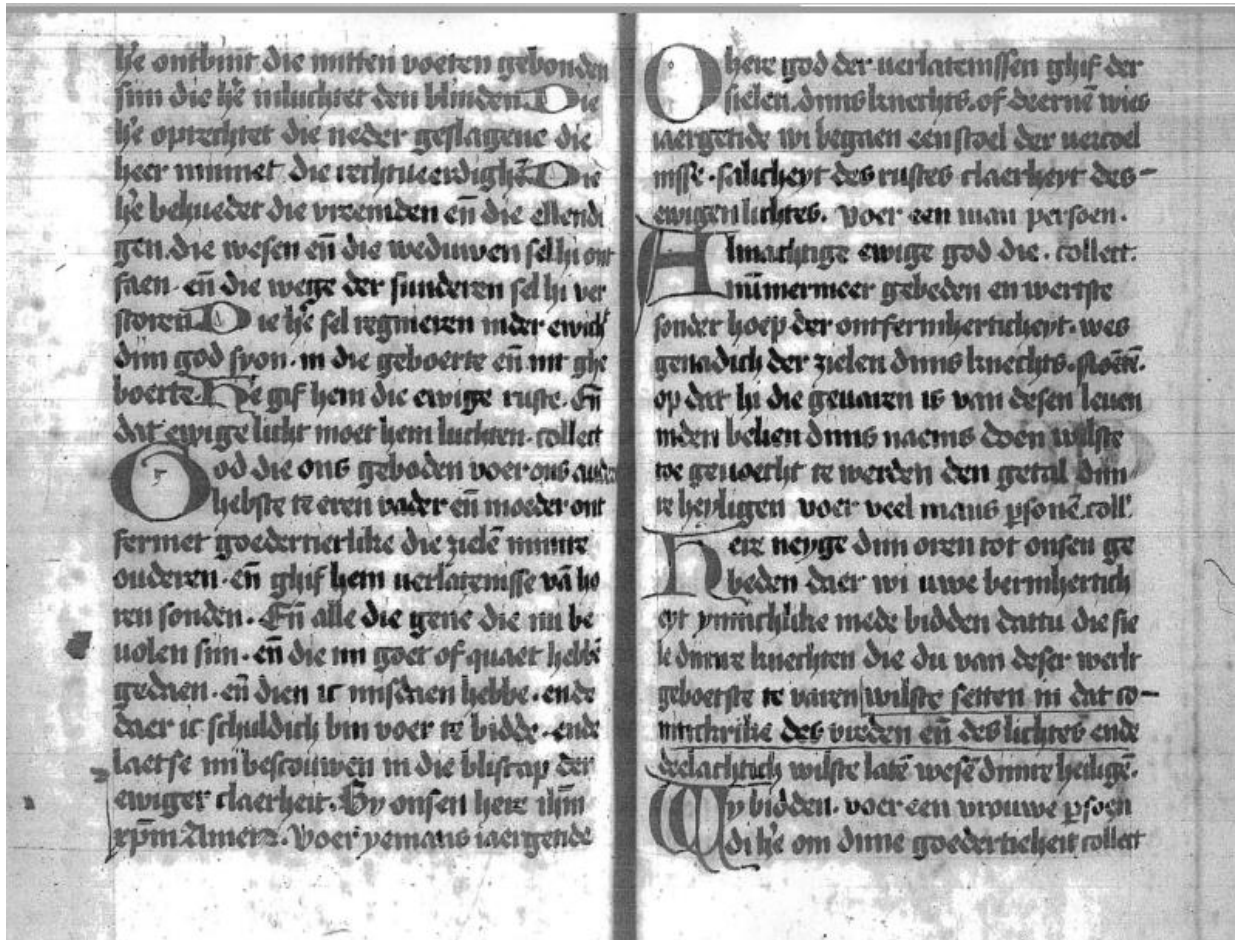 he ontbint die mitten voeten gebonden
sijn die he inluchtet den blinden. Die
he oprechtet die neder geslagene die
heer minnet die rechtueerdighē Die
he behuedet die vreemden en̄ die ellendi
gen. die wesen en̄ die weduwen sel hi ont
faen. en̄ die wege der sunderen sel hi ver
storen Die he sel regnieren in der ewich
dijn god syon. in die geboerte en̄ int ghe
boerte. He gif hem die ewige ruste. En̄
dat ewige licht moet hem luchten. collect
God die ons geboden voer ons
liebste te eren vader en̄ moeder ont
fermet goedertierlike die zielē minre
ouderen. en̄ ghif hem uerlatenisse vā ho
ren sonden. En̄ alle die gene die mi be
uolen sijn. en̄ die mi goet of quaet hebbē
gedaen. en̄ dien ic misdaen hebbe. ende
daer ic schuldich bin voer te bidde. ende
laetse mi bescouwen in die bliscap der
ewiger claerheit. By onsen here ihm̄
xp̄m Amen. Voer yemans iaergende
O here god der uerlatenissen ghif der
sielen. dijns knechts. of deernē wies
iaergetide wi begaen een stoel der vercoel
nisse. salicheyt des rustes claerheyt des
ewigen lichtes. voer een man persoen.
Almachtige ewige god die. collect.
nūmermeer gebeden en wertste
sonder hoep der ontfermherticheyt. wes
genadich der zielen dijns knechts.
op dat hi die geuaren is van desen leuen
inden belien dijns naems doen wilste
toe geuoecht te werden den getal dijn
re heyligen voer veel mans p̱sonē. coll'.
Here neyge dijn oren tot onsen ge
beden daer wi uwe bermhertich
eyt ynnichlike mede bidden dattu die sie
le dijnre knechten die du van deser werlt
geboetste te varen wilste setten in dat co-
ninckrike des vreden en̄ des lichtes ende
deelachtich wilste latē wesē dijnre heiligē.
Wy bidden. voer een vrouwe p̱soen
di he om dijne goedertieheit collect